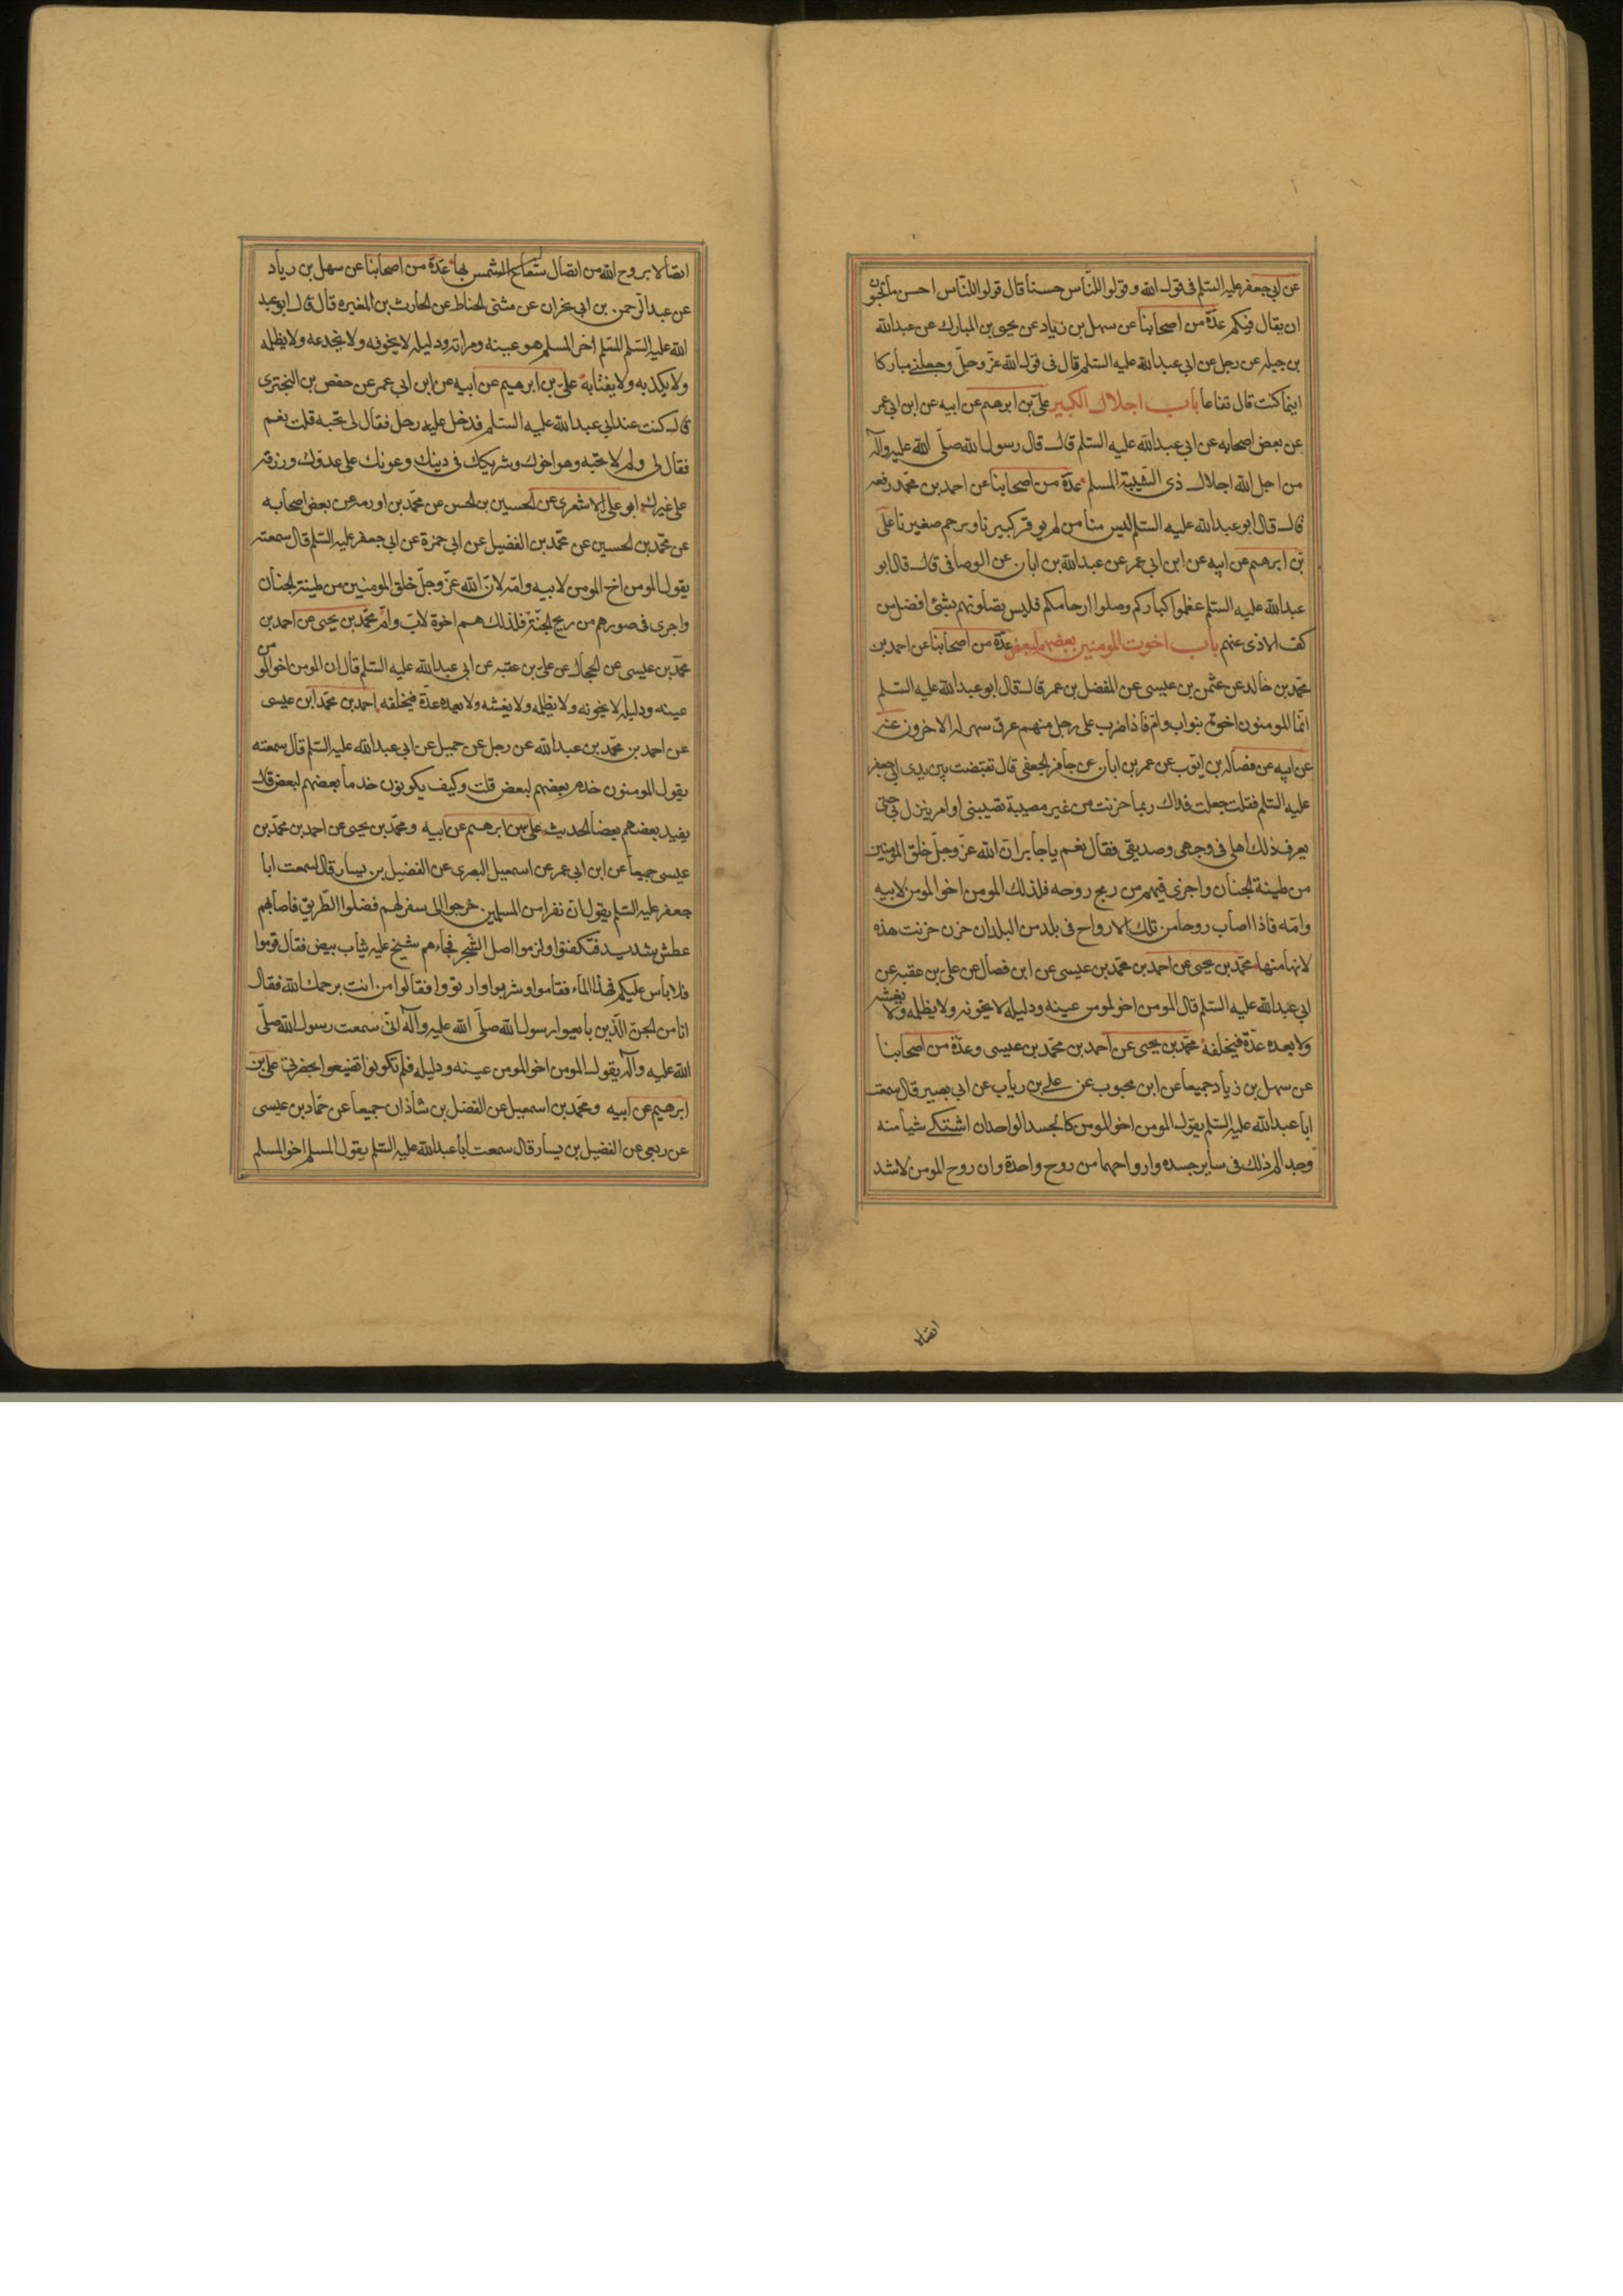 عن ابي جعفر عليه السلم فى قول الله و قولوا للنّاس حسناً قال قولوا للنّاس احسن ما تحبّون
ان يقال فيكم عدّة من اصحابنا عن سهل بن زياد عن يحيى بن المبارك عن عبد الله
بن جبله عن رجل عن ابي عبد الله عليه السلم قال فى قول الله عزّ وجلّ وجعلنى مباركا
اينما كنت قال نفاعا باب اجلال الكبير علىّ بن ابرهيم عن ابيه عن ابن ابي عمر
عن بعض اصحابه عن ابى عبد الله عليه السلم قال قال رسول الله صلّى الله عليه وآله
من اجل الله اجلال ذى الشّيبة المسلم عدّة من اصحابنا عن احمد بن محمّد رفعه
قال قال ابو عبد الله عليه السلم ليس منّا من لم يوقر كبيرنا ويرحم صغيرنا علىّ
بن ابرهيم عن ابيه عن ابن ابي عمر عن عبد الله بن ابان عن الوصافى قال قال ابو
عبد الله عليه السلم عظموا كباركم وصلوا ارحامكم فليس تصلونهم بشئ افضل من
كف الاذى عنهم باب اخوت المومنين بعضهم لبعض عدّة من اصحابنا عن احمد بن
محمّد بن خالد عن عثمن بن عيسى عن المفضل بن عمر قال قال ابو عبد الله عليه السلم
انّما المومنون اخوة بنواب وام فاذا ضرب على رجل منهم عرق سهر له الاخرون عنه
عن ابيه عن فضاله بن ايوّب عن عمر بن ابان عن جابر الجعفى قال تقبّضت بين يدى ابى جعفر
عليه السلم فقلت جعلت فداك ربما حزنت من غير مصيبة تصيبنى او امر ينزل بى حتى
يعرف ذلك اهلى فى وجهى وصديقى فقال نعم يا جابر ان الله عزّ وجلّ خلق المومنين
من طينة الجنان واجرى فيهم من ريح روحه فلذلك المومن اخو المومن لابيه
وامّه فاذا اصاب روحا من تلك الارواح فى بلد من البلدان حزن حزنت هذه
لانها منها محمّد بن يحيى عن احمد بن محمّد بن عيسى عن ابن فضال عن على بن عقبه عن
ابى عبد الله عليه السلم قال المومن اخو المومن عينه ودليله لا يخونه ولا يظلمه ولا يغشه
ولا يعده عدّة فيخلفه محمّد بن يحيى عن احمد بن محمّد بن عيسى وعدّة من اصحابنا
عن سهل بن زياد جميعا عن ابن محبوب عن على بن رياب عن ابى بصير قال سمعت
ابا عبد الله عليه السلم يقول المومن اخو المومن كالجسد الواحد ان اشتكى شيأ منه
وجد الم ذلك فى ساير جسده وارواحهما من روح واحدة وان روح المومن لاشد
اتصالا
اتصالا بروح الله من اتصال شعاع الشمس بها عدّة من اصحابنا عن سهل بن زياد
عن عبد الرّحمن بن ابى نجران عن مثنى الحناط عن الحارث بن المغيره قال قال ابو عبد
الله عليه السلم المسلم اخو المسلم هو عينه ومراته ودليله لا يخونه ولا يخدعه ولا يظلمه
ولا يكذبه ولا يغتابه علىّ بن ابرهيم عن ابيه عن ابن ابى عمر عن حفص بن البخترى
قال كنت عند ابى عبد الله عليه السلم فدخل عليه رجل فقال لى تحبه قلت نعم
فقال لى ولم لا تحبّه وهو اخوك وشريكك فى دينك وعونك على عدوّك ورزقه
على غيرك ابو على الاشعرى عن الحسين بن الحسن عن محمّد بن اورمه عن بعض اصحابه
عن محمّد بن الحسين عن محمّد بن الفضيل عن ابى حمزة عن ابى جعفر عليه السلم قال سمعته
يقول المومن اخ المومن لابيه وامّه لانّ الله عزّ وجلّ خلق المومنين من طينة الجنان
واجرى فى صورهم من ريح الجنّة فلذلك هم اخوة لاب وامّ محمّد بن يحيى عن احمد بن
محمّد بن عيسى عن الحجال عن علىّ بن عقبه عن ابى عبد الله عليه السلم قال ان المومن اخو المومن
عينه ودليله لا يخونه ولا يظلمه ولا يغشه ولا يعده عدّة فيخلفه احمد بن محمّد ابن عيسى
عن احمد بن محمّد بن عبد الله عن رجل عن جميل عن ابى عبد الله عليه السلم قال سمعته
يقول المومنون خدم بعضهم لبعض قلت وكيف يكونون خدما بعضهم لبعض قال
يفيد بعضهم بعضا الحديث على بن ابرهيم عن ابيه ومحمّد بن يحيى عن احمد بن محمّد بن
عيسى جميعا عن ابن ابى عمر عن اسمعيل البصرى عن الفضيل بن يسار قال سمعت ابا
جعفر عليه السلم يقول ان نفرا من المسلمين خرجوا الى سفر لهم فضلوا الطّريق فاصابهم
عطش شديد فتكفنوا ولزموا اصل الشّجر فجاءهم شيخ عليه ثياب بيض فقال قوموا
فلا باس عليكم فهذا الماء فقاموا وشربوا وارتووا فقالوا من انت يرحمك الله فقال
انا من الجنّ الّذين بايعوا رسول الله صلّى الله عليه وآله انّى سمعت رسول الله صلّى
الله عليه وآله يقول المومن اخو المومن عينه ودليله فلم تكونوا تضيعوا بحضرتى علىّ بن
ابرهيم عن ابيه ومحمّد بن اسمعيل عن الفضل بن شاذان جميعا عن حمّاد بن عيسى
عن ربعى عن الفضيل بن يسار قال سمعت ابا عبد الله عليه السلم يقول المسلم اخو المسلم